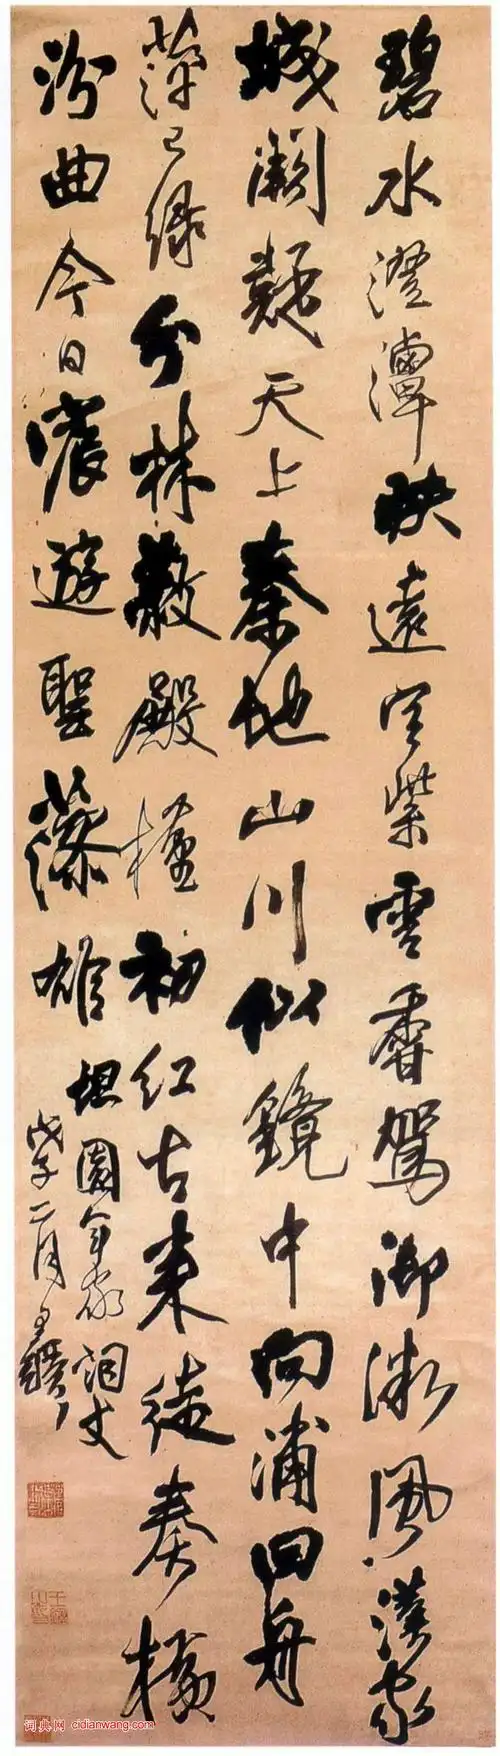 碧水澄潭映遠空紫雲香駕御微風漢家
城闕疑天上秦地山川似鏡中向浦回舟
萍已綠分林蔽殿槿初紅古來徒奏橫
汾曲今日宸遊聖藻雄
坦園年家詞丈
戊子二月王鐸
词典网 cidianwang.com